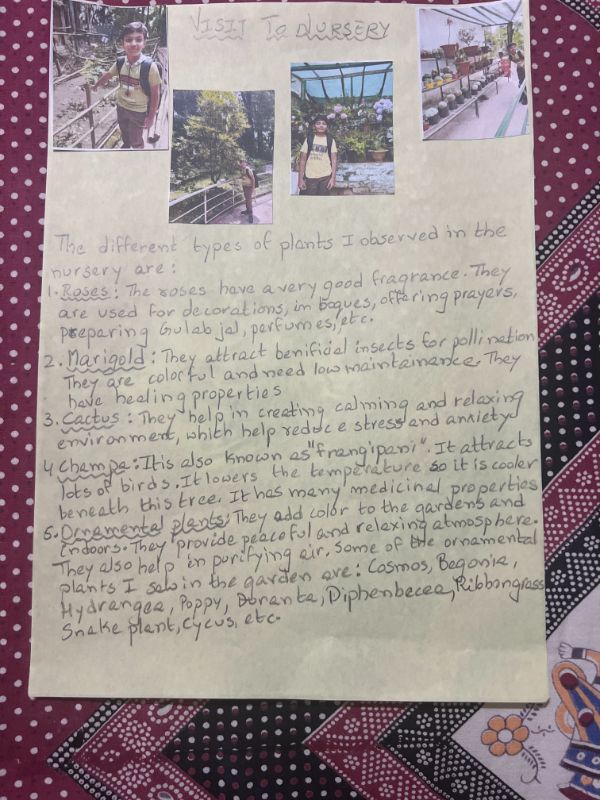 VISIT TO NURSERY
The different types of plants I observed in the
nursery are:
1. Roses: The roses have a very good fragrance. They
are used for decorations, in boques, offering prayers,
preparing Gulab jal, perfumes, etc.
2. Marigold: They attract benificial insects for pollination
They are colorful and need low maintainance. They
have healing properties
3. Cactus: They help in creating calming and relaxing
environment, which help reduce stress and anxiety
4 Champa: It is also known as "frangipani". It attracts
lots of birds. It lowers the temperature so it is cooler
beneath this tree. It has many medicinal properties
5. Ornamental plants: They add color to the gardens and
indoors. They provide peaceful and relaxing atmosphere.
They also help in purifying air. Some of the ornamental
plants I saw in the garden are: Cosmos, Begonia,
Hydrangea, Poppy, Duranta, Diphenbecea, Ribbongrass
Snake plant, Cycus, etc.